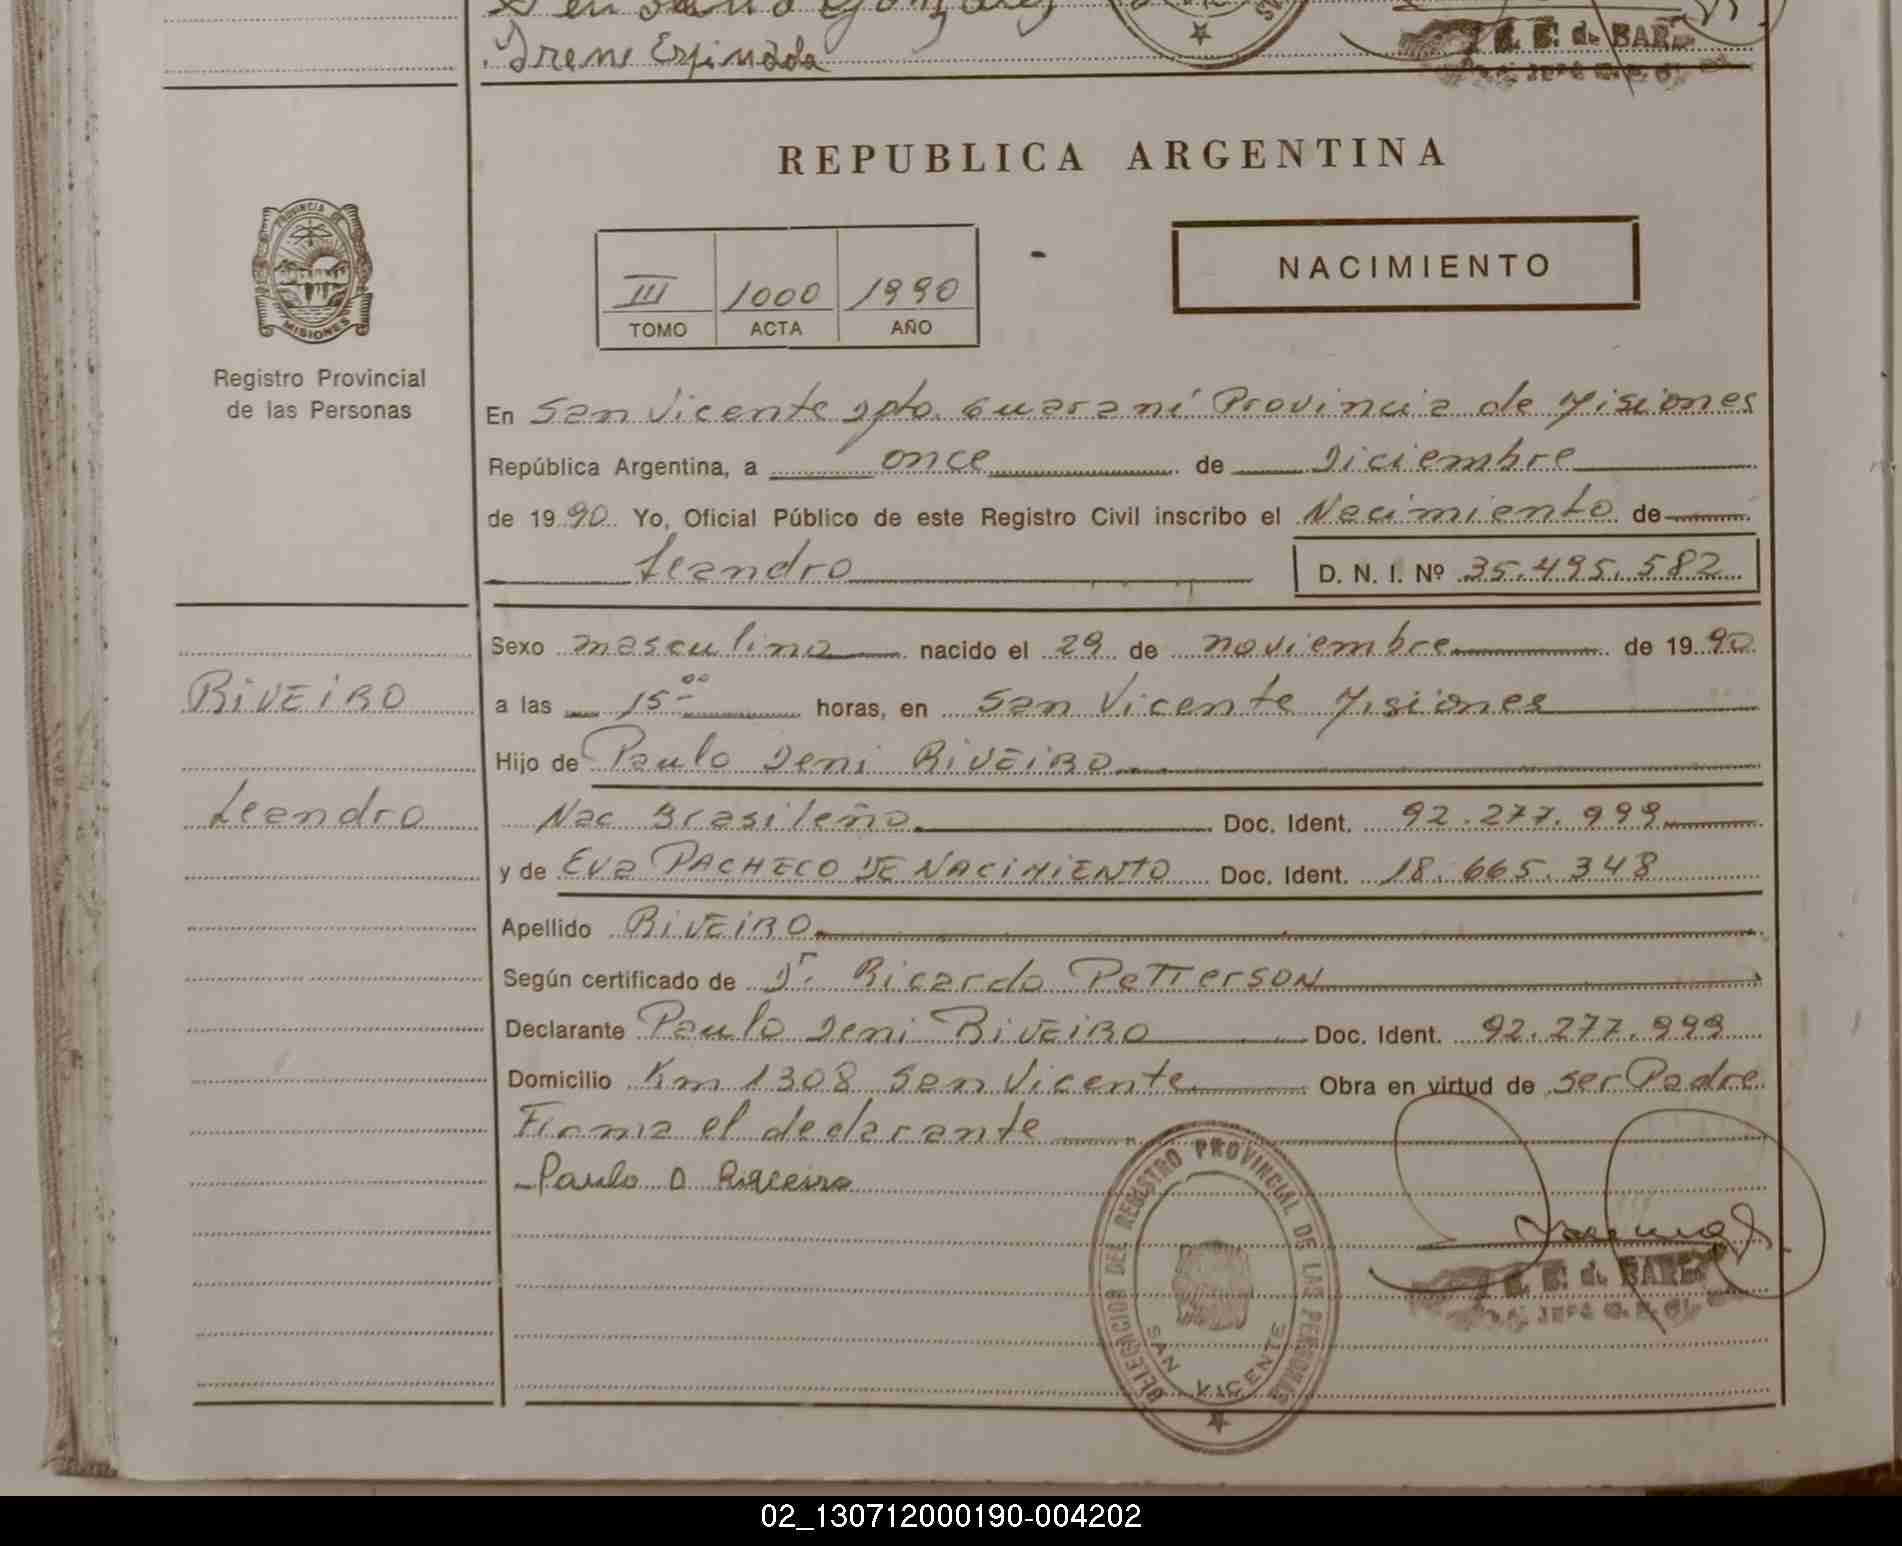 Irene Espinada
REPUBLICA ARGENTINA
PROVINCIA DE
MISIONES
Registro Provincial
de las Personas
III 1000 1990
TOMO ACTA AÑO
NACIMIENTO
En San Vicente Dpto. Guaraní Provincia de Misiones
República Argentina, a once de Diciembre
de 1990 Yo, Oficial Público de este Registro Civil inscribo el Nacimiento de
Leandro D. N. I. Nº 35.495.582
Sexo masculino nacido el 29 de noviembre de 1990
RiVEiRO
a las 15 00 horas, en San Vicente Misiones
Hijo de Paulo Deni RiVEiRO
Leandro
Nac Brasileño Doc. Ident. 92.277.999
y de Eva PACHECO DE NACiMiENTO Doc. Ident. 18.665.348
Apellido RiVEiRO
Según certificado de Dr. Ricardo PeTTersON
Declarante Paulo Deni RiVEiRO Doc. Ident. 92.277.999
Domicilio Km 1308 San Vicente Obra en virtud de ser Padre
Firma el declarante
Paulo D
DELEGACION DEL REGISTRO PROVINCIAL DE LAS PERSONAS
SAN VICENTE
02_130712000190-004202